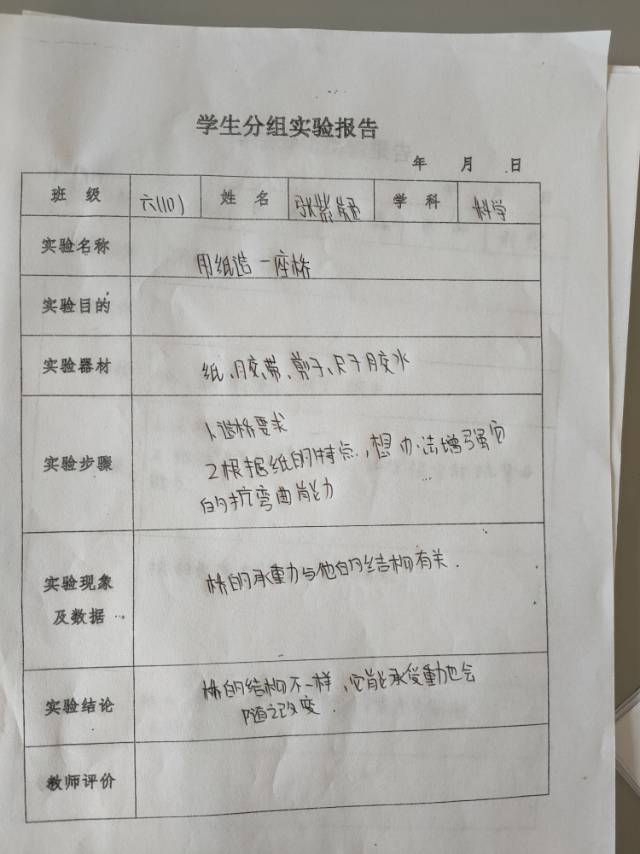 学生分组实验报告
年 月 日
班 级 六(10) 姓 名 张紫 学 科 科学
实验名称 用纸造一座桥
实验目的
实验器材 纸、胶带、剪子、尺子胶水
实验步骤 1造桥要求
2根据纸的特点,想办法增强它
的抗弯曲能力
实验现象
及数据 桥的承重力与他的结构有关.
实验结论 桥的结构不一样,它能承受重力也会
随之改变.
教师评价